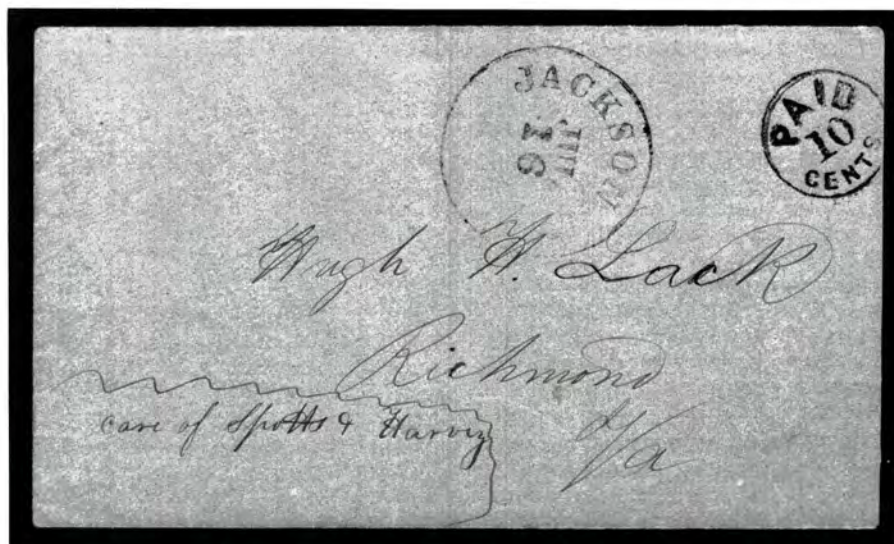 JACKSON
16
JUL
PAID
10
CENTS
Hugh H. Lack
Richmond
Va
care of Spotts & Harvey